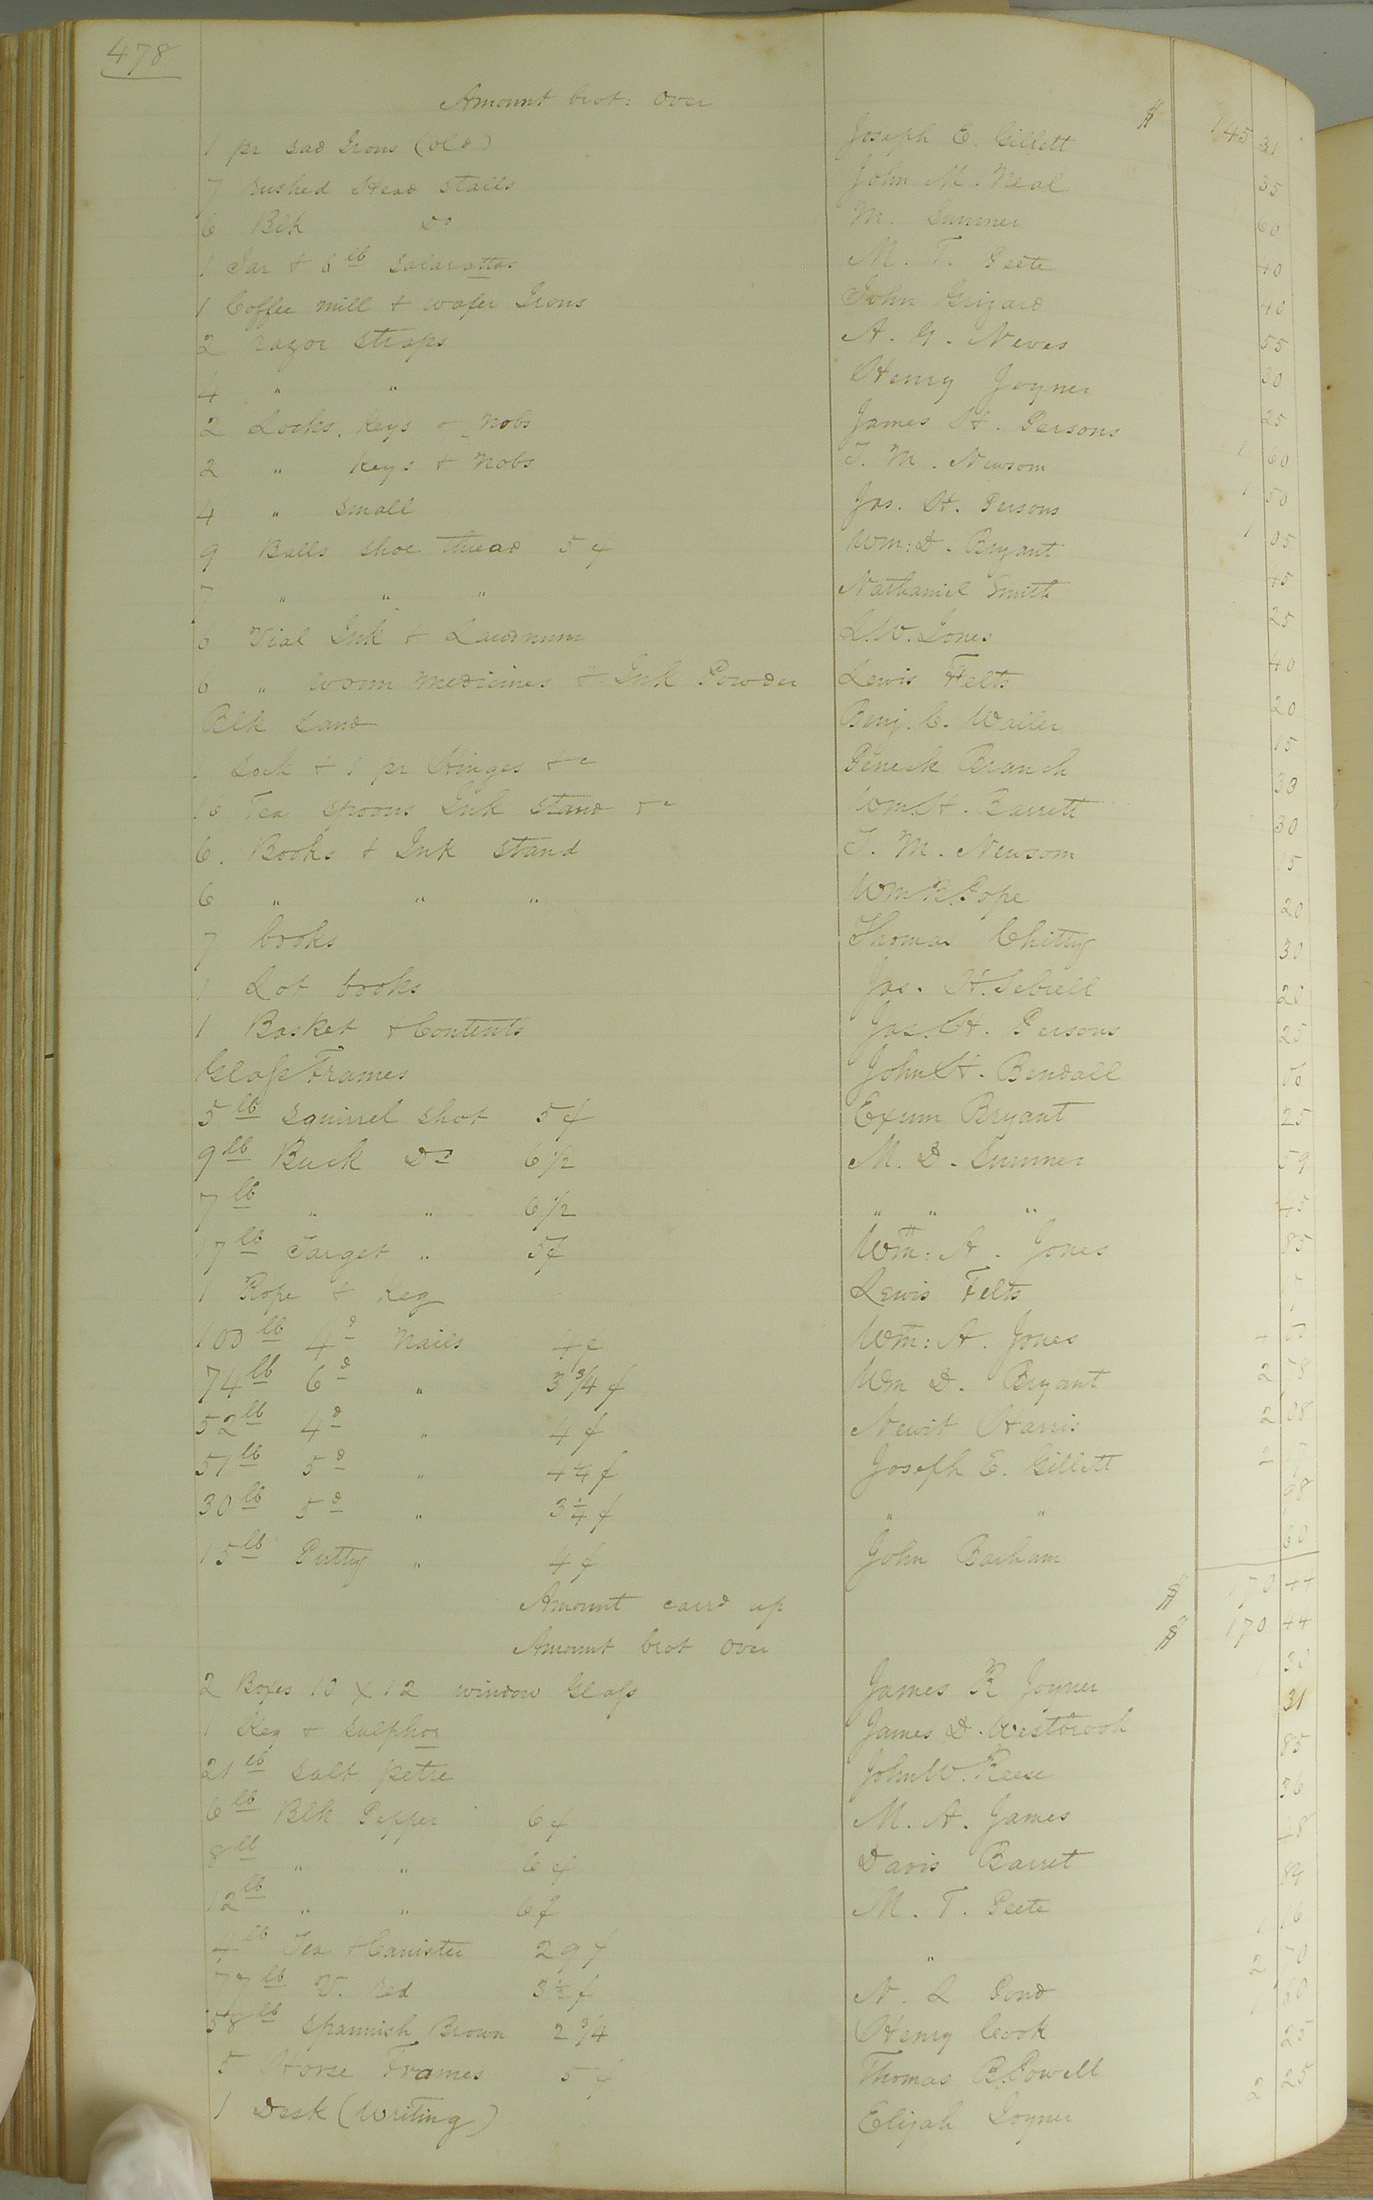 478
Amount brot: over $ 145 31
1 pr sad Irons (old) Joseph E. Gillett 35
7 Rushed Head Stalls John M. Neal 60
6 Blk Do M. Sumner 40
1 Jar & 6 lb Salarattas M. T. Peete 40
1 Coffee mill & wafer Irons John Grizard 55
2 razor straps A. G. Neves 30
4 " " Henry Joyner 25
2 Locks, Keys & Nobs James H. Persons 1 60
2 " Keys & Nobs T. M. Newsom 1 50
4 " small Jas. H. Persons 1 05
9 Balls shoe thread 5 ¢ Wm: D. Bryant 45
7 " " " Nathaniel Smith 25
6 Vial Ink & Laudnum L.W. Jones 40
6 " worm medicines & Ink Powder Lewis Felts 20
Blk Sand Benj. C. Waller 15
1 Lock & 1 pr Hinges &c Peneck Branch 30
10 Tea spoons Ink stand &c Wm H. Barrett 30
6. Books & Ink stand T. M. Newsom 15
6 " " " Wm R. Pope 20
7 books Thomas Chitty 30
1 Lot books Jas. H. Sebrell 25
1 Basket & Contents Jas. H. Persons 25
Glass Frames John H. Bendall
5 lb Squirrel shot 5 ¢ Exum Bryant 25
9 lb Buck Do 6 1/2 M. D. Sumner 59
7 lb " " 6 1/2 " " " 45
17 lb Target " 5¢ Wm: A. Jones 85
1 Rope & Keg Lewis Felts
100 lb 4d Nails 4¢ Wm: A. Jones 4
74 lb 6d " 3 3/4 ¢ Wm D. Bryant 2 78
52 lb 4d " 4 ¢ Newit Harris 2 08
51 lb 5d " 4 1/4 ¢ Joseph E. Gillett 2 17
30 lb 5d " 3 1/4 ¢ " " 98
15 lb Putty " 4 ¢ John Barham 60
Amount carrd up $ 170 44
Amount brot over $ 170 44
2 Boxes 10 x 12 window Glass James R Joyner 30
1 Keg & Sulphor James D. Westbrook 31
21 lb Salt petre John W. Reese 85
6 lb Blk Pepper 6 ¢ M. A. James 36
8 lb " " 6 ¢ Davis Barret 48
12 lb " " 6¢ M. T. Peete 84
4 lb Tea & Canister 29 ¢ " 1 16
77 lb V. Red 3 1/2 ¢ N. L Pond 2 70
58 lb Spannish Brown 2 3/4 Henry Cook 1 60
5 Horse Frames 5 ¢ Thomas B. Powell 25
1 Desk (Writing) Elijah Joyner 2 25